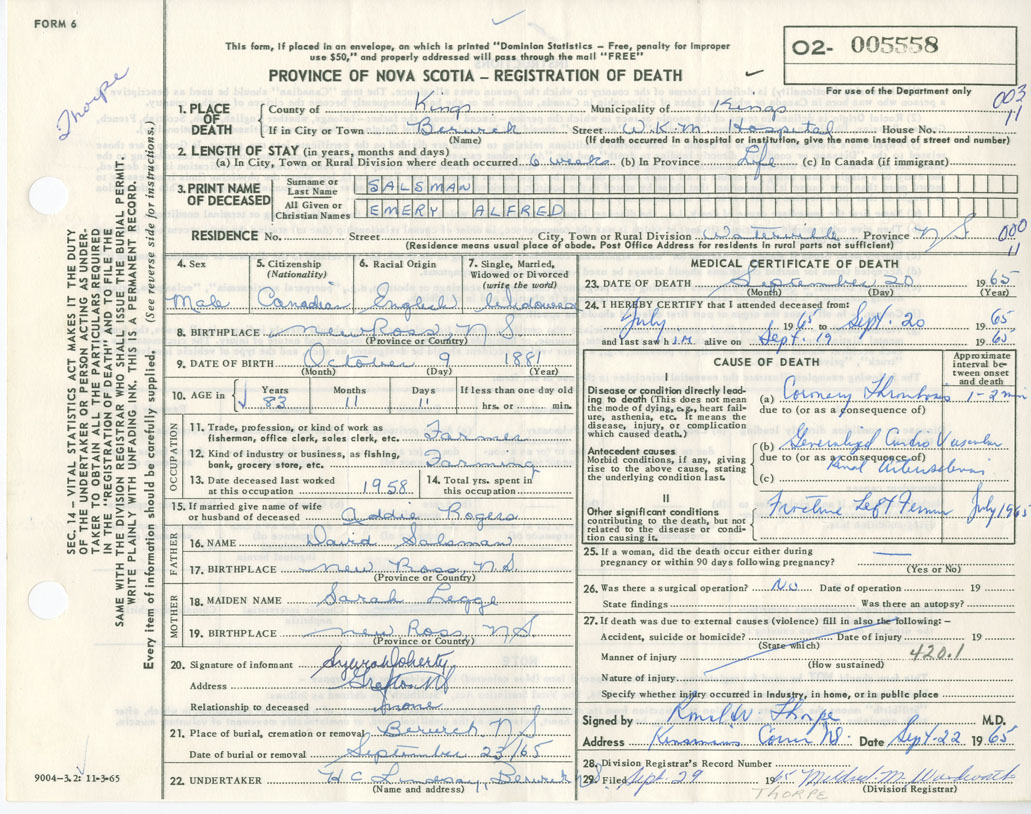 FORM 6
This form, if placed in an envelope, on which is printed "Dominion Statistics – Free, penalty for improper
use $50," and properly addressed will pass through the mail "FREE"
O2- 005558
For use of the Department only
PROVINCE OF NOVA SCOTIA – REGISTRATION OF DEATH
Thorpe
003
11
1. PLACE OF DEATH
County of Kings Municipality of Kings
If in City or Town Berwick Street W.K.M. Hospital House No.
(Name) (If death occurred in a hospital or institution, give the name instead of street and number)
2. LENGTH OF STAY (in years, months and days)
(a) In City, Town or Rural Division where death occurred 6 weeks (b) In Province Life (c) In Canada (if immigrant)
3. PRINT NAME OF DECEASED
Surname or Last Name SALSMAN
All Given or Christian Names EMERY ALFRED
RESIDENCE No. Street City, Town or Rural Division Waterville Province N S
(Residence means usual place of abode. Post Office Address for residents in rural parts not sufficient)
000
11
SEC. 14 – VITAL STATISTICS ACT MAKES IT THE DUTY
OF THE UNDERTAKER OR PERSON ACTING AS UNDER-
TAKER TO OBTAIN ALL THE PARTICULARS REQUIRED
IN THE "REGISTRATION OF DEATH" AND TO FILE THE
SAME WITH THE DIVISION REGISTRAR WHO SHALL ISSUE THE BURIAL PERMIT.
WRITE PLAINLY WITH UNFADING INK, THIS IS A PERMANENT RECORD.
Every item of information should be carefully supplied. (See reverse side for instructions.)
4. Sex
Male
5. Citizenship
(Nationality)
Canadian
6. Racial Origin
English
7. Single, Married,
Widowed or Divorced
(write the word)
Widowed
8. BIRTHPLACE New Ross, N S.
(Province or Country)
9. DATE OF BIRTH October 9 1881
(Month) (Day) (Year)
10. AGE in Years 83 Months 11 Days 11 If less than one day old
hrs. or min.
OCCUPATION
11. Trade, profession, or kind of work as
fisherman, office clerk, sales clerk, etc. Farmer
12. Kind of industry or business, as fishing,
bank, grocery store, etc. Farming
13. Date deceased last worked
at this occupation 1958
14. Total yrs. spent in
this occupation
15. If married give name of wife
or husband of deceased Addie Rogers
FATHER
16. NAME David Salsman
17. BIRTHPLACE New Ross, N.S.
(Province or Country)
MOTHER
18. MAIDEN NAME Sarah Legge
19. BIRTHPLACE New Ross N.S.
(Province or Country)
20. Signature of informant
Address Grafton NS
Relationship to deceased none
21. Place of burial, cremation or removal Berwick N S
Date of burial or removal September 23/65
22. UNDERTAKER H C Lindsay, Berwick
(Name and address)
9004–3.2: 11-3-65
MEDICAL CERTIFICATE OF DEATH
23. DATE OF DEATH September 20 1965
(Month) (Day) (Year)
24. I HEREBY CERTIFY that I attended deceased from:
July 1 1965 to Sept. 20 1965
and last saw h I.M. alive on Sept. 19 1965
CAUSE OF DEATH
Approximate
interval be-
tween onset
and death
I
Disease or condition directly lead-
ing to death (This does not mean
the mode of dying, e.g., heart fail-
ure, asthenia, etc. It means the
disease, injury, or complication
which caused death.)
(a) Coronary Thrombosis 1-2 min
due to (or as a consequence of)
Antecedent causes
Morbid conditions, if any, giving
rise to the above cause, stating
the underlying condition last.
(b) Generalized Cardio Vascular
due to (or as a consequence of)
Renal Arteriosclerosis
(c)
II
Other significant conditions
contributing to the death, but not
related to the disease or condi-
tion causing it.
Fracture Left Femur July 1965
25. If a woman, did the death occur either during
pregnancy or within 90 days following pregnancy?
(Yes or No)
26. Was there a surgical operation? No Date of operation 19
State findings Was there an autopsy?
27. If death was due to external causes (violence) fill in also the following: –
Accident, suicide or homicide? Date of injury 19
(State which)
Manner of injury 420.1
(How sustained)
Nature of injury
Specify whether injury occurred in industry, in home, or in public place
Signed by Thorpe M.D.
Address Kinsmans Corner NS. Date Sept. 22 1965
28. Division Registrar's Record Number
29. Filed Sept. 29 1965 Mildred M. Woodworth
(Division Registrar)
THORPE